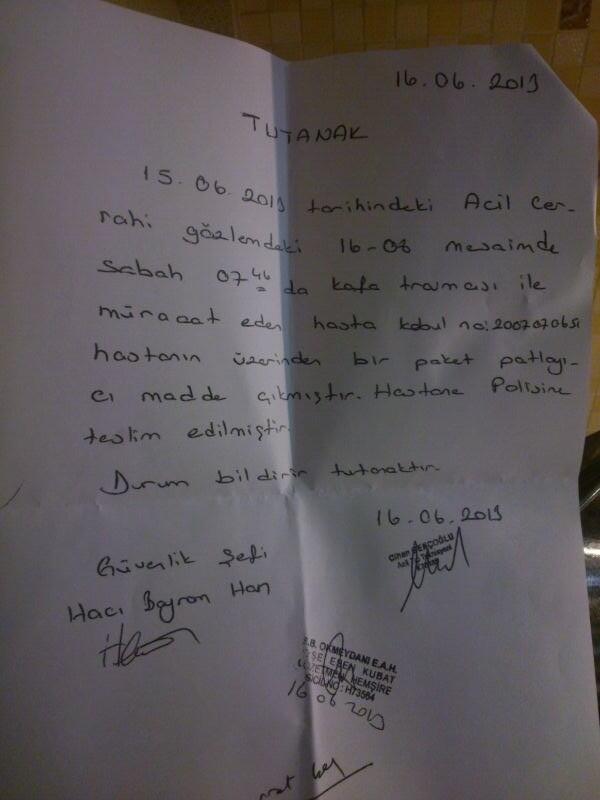 16.06.2013
TUTANAK
15.06.2013 tarihindeki Acil Cer-
rahi gözlemdeki 16-08 mesaimde
sabah 07 46 da kafa travması ile
müracat eden hasta kabul no: 2007070651
hastanın üzerinden bir paket patlayı-
cı madde çıkmıştır. Hastane Polisine
teslim edilmiştir.
Durum bildirir tutanaktır.
16.06.2013
Güvenlik Şefi
Hacı Bayram Han
Cihan
Acil Tıp Teknisyeni
S.B. OKMEYDANI E.A.H.
AYŞE ESEN KUBAT
UZETMEN HEMŞİRE
SİCİL NO: H73564
16 06 2013